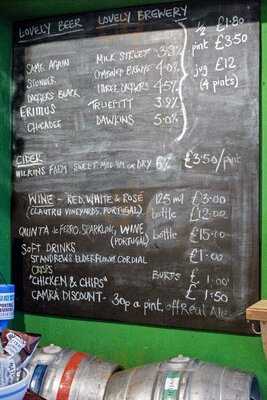 LOVELY BEER LOVELY BREWERY
½ £1.80
SAME AGAIN MILK STREET 3.9% pint £3.50
STONNER 4.0% jug £12
DAGGERS BLACK THREE DAGGERS 4.5% (4 pints)
ERIMUS TRUEFITT 3.9%
CHICKADEE DAWKINS 5.0%
CIDER
WILKINS FARM SWEET, MEDIUM OR DRY 6% £3.50/pint
WINE - RED, WHITE & ROSÉ 125ml £3.00
(CLAUTRU VINEYARDS, PORTUGAL) bottle £12.00
QUINTA do FERRO, SPARKLING WINE bottle £15.00
(PORTUGAL)
SOFT DRINKS £1.00
ST ANDREWS ELDERFLOWER CORDIAL
CRISPS BURTS £1.00
"CHICKEN & CHIPS" £1.50
CAMRA DISCOUNT - 30p a pint, off Real Ale